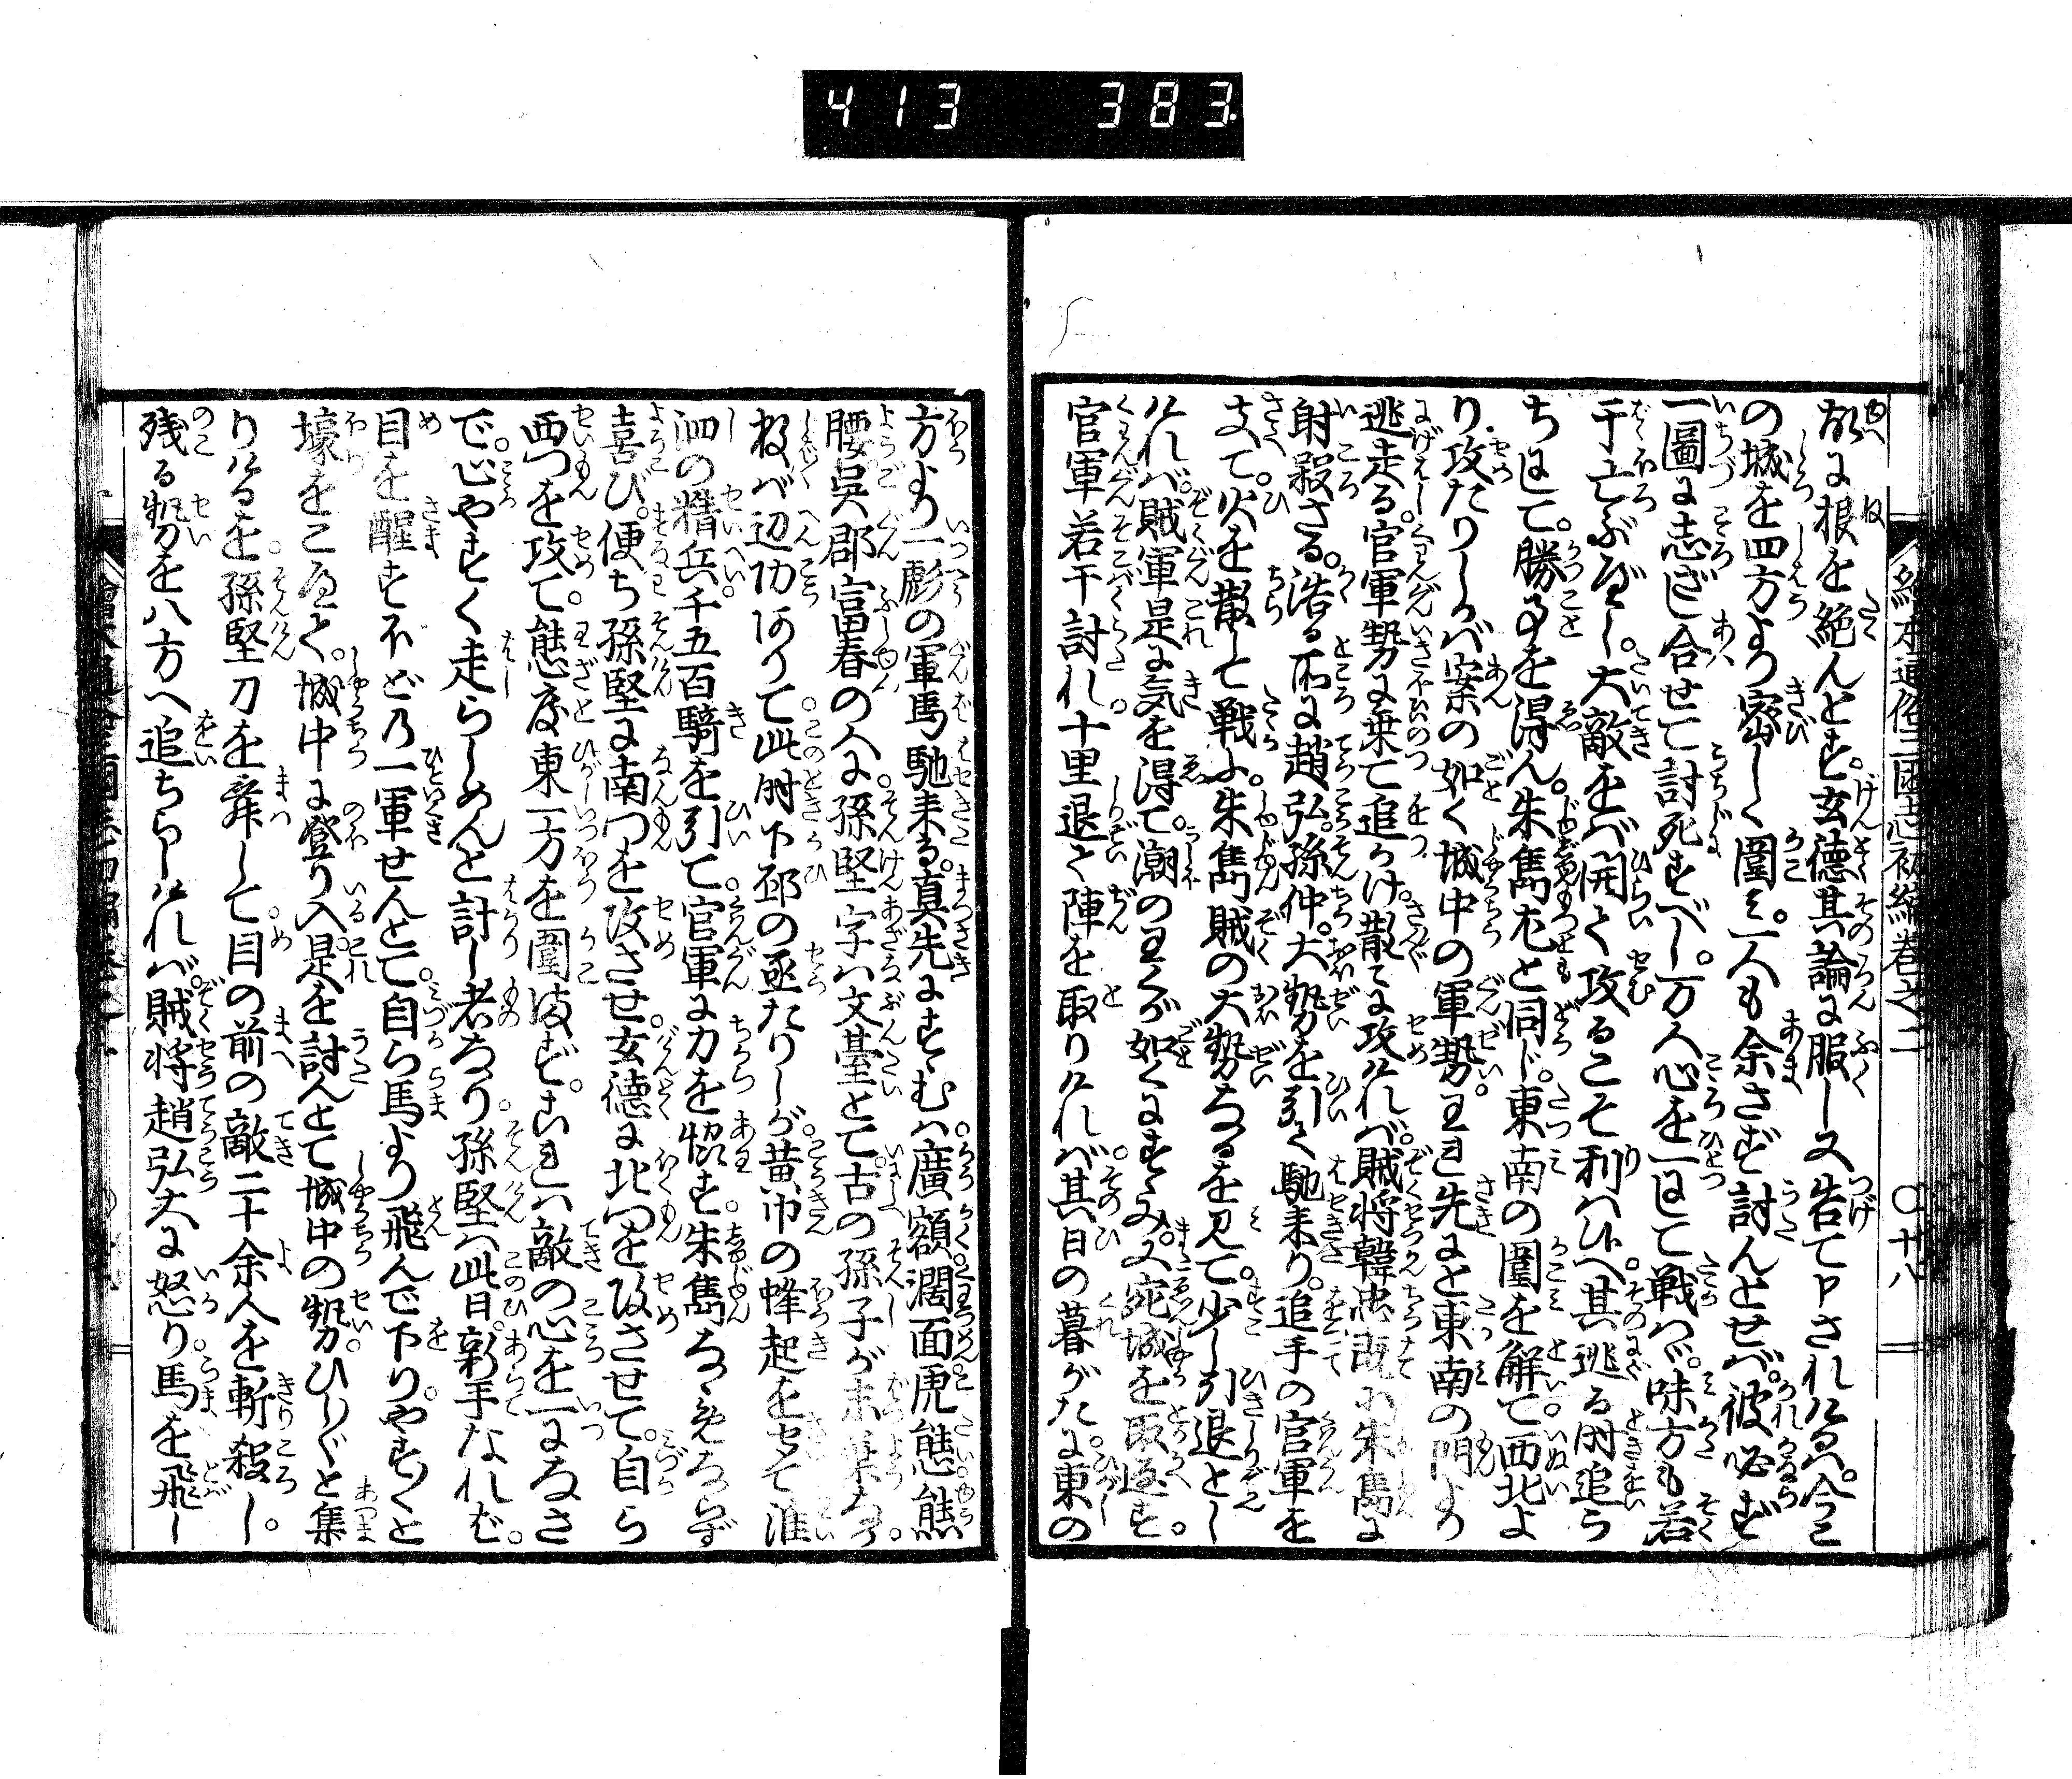 413 383
絵本通俗三国志初編巻之二 〇十八
故に根を絶んとす。玄徳其論に服し又告て申されけるは。今この
の城を四方より密しく圍み。一人も余さず討んとせば。彼必ず
一圖に志ざし合せて討死すべし。万人心を一にして戦はゞ。味方も若
干亡ぶべし。大敵をば開ひて攻るこそ利はいへ。其逃る時追う
ちにして。勝ことを得ん。朱雋尤と同じ。東南の圍を解て西北よ
り攻たりしかば案の如く城中の軍勢。われ先にと東南の門より
逃走る。官軍勢に乗て追かけ。散々に攻ければ。賊将韓忠既に朱雋に
射殺さる。浩る所に趙弘。孫仲。大勢を引て馳来り。追手の官軍を
支て。火を散して戦ふ。朱雋賊の大勢なるを見て。少し引退とし
ければ。賊軍是に気を得て。潮のわくが如くにすゝみ。又宛城を取返す。
官軍若干討れ。十里退て陣を取りければ。其日の暮がた。に東の
方より一彪の軍馬馳来る。真先にすゝむは。廣額濶面虎態熊
腰呉郡富春の人に。孫堅字は文臺とて。古の孫子が末葉なり。
數ば辺功ありて。此時下邳の丞たりしが。黄巾の蜂起をきゝて淮
泗の精兵。千五百騎を引て。官軍に力を恊す。朱雋なゝめならず
喜び。便ち孫堅に南門を攻させ。玄徳に北門を攻させて。自ら
西門を攻て。態と東一方を圍まず。これは敵の心を一になさ
で。心やすく走らしめんと計し者なり。孫堅は此日。新手なれば。
目を醒すほどの一軍せんとて。自ら馬より飛んで下り。やす〱と
壕をこえて。城中に登り入。是を討んとて城中の勢。ひし〱と集
りけるを。孫堅刀を舞して。目の前の敵二十余人を斬殺し。
残る勢を八方へ追ちらしければ。賊将趙弘大に怒り。馬を飛し